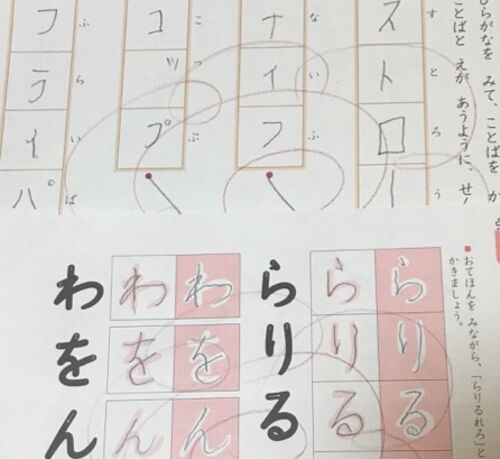 ひらがなを みて、ことばを か
ことばと えが あうように、せ
すとろう
ストロー
ないふ
ナイフ
こぷ
コップ
ふらいぱ
フライパ
■おてほんを みながら、「らりるれろ」と
かきましょう。
らりる
らりる
らりる
わをん
わをん
わをん